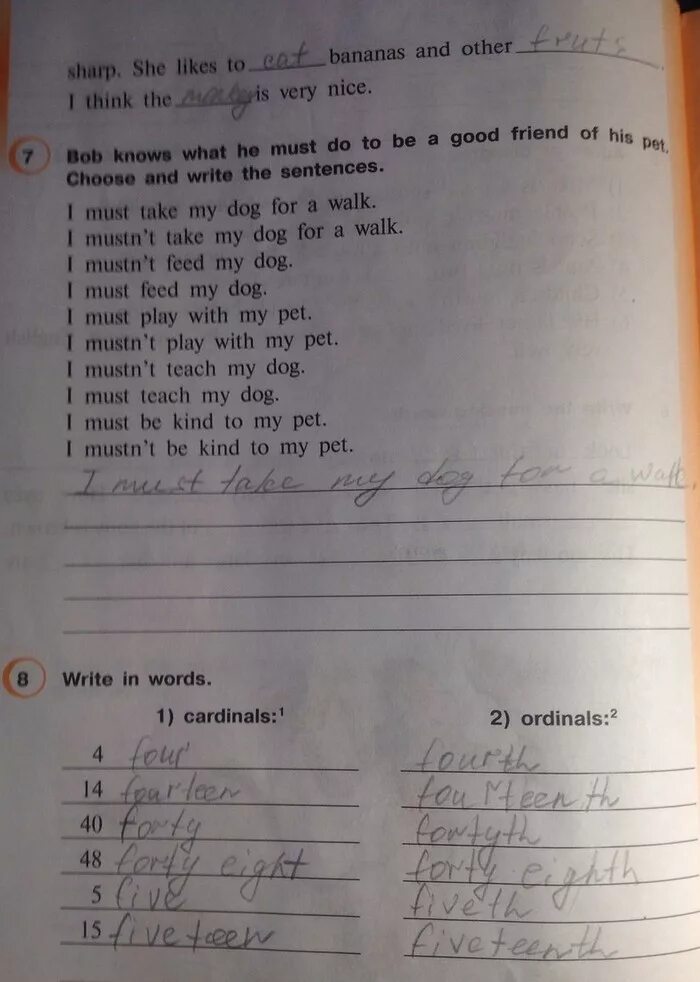 sharp. She likes to eat bananas and other fruts
I think the is very nice.
7 Bob knows what he must do to be a good friend of his pet.
Choose and write the sentences.
I must take my dog for a walk.
I mustn't take my dog for a walk.
I mustn't feed my dog.
I must feed my dog.
I must play with my pet.
I mustn't play with my pet.
I mustn't teach my dog.
I must teach my dog.
I must be kind to my pet.
I mustn't be kind to my pet.
I must take my dog for a walk.
8 Write in words.
1) cardinals:¹ 2) ordinals:²
4 four fourth
14 fourteen fourteenth
40 forty fortyth
48 forty eight forty eighth
5 five fiveth
15 fiveteen fiveteenth